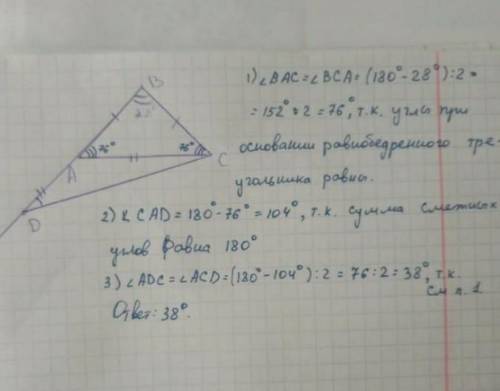 B
28°
76°
76°
A
C
D
1) ∠BAC=∠BCA=(180°-28°):2=
=152°:2=76°, т.к. углы при
основании равнобедренного тре-
угольника равны.
2) ∠CAD=180°-76°=104°, т.к. сумма смежных
углов равна 180°
3) ∠ADC=∠ACD=(180°-104°):2=76:2=38°, т.к.
см п. 1
Ответ: 38°.